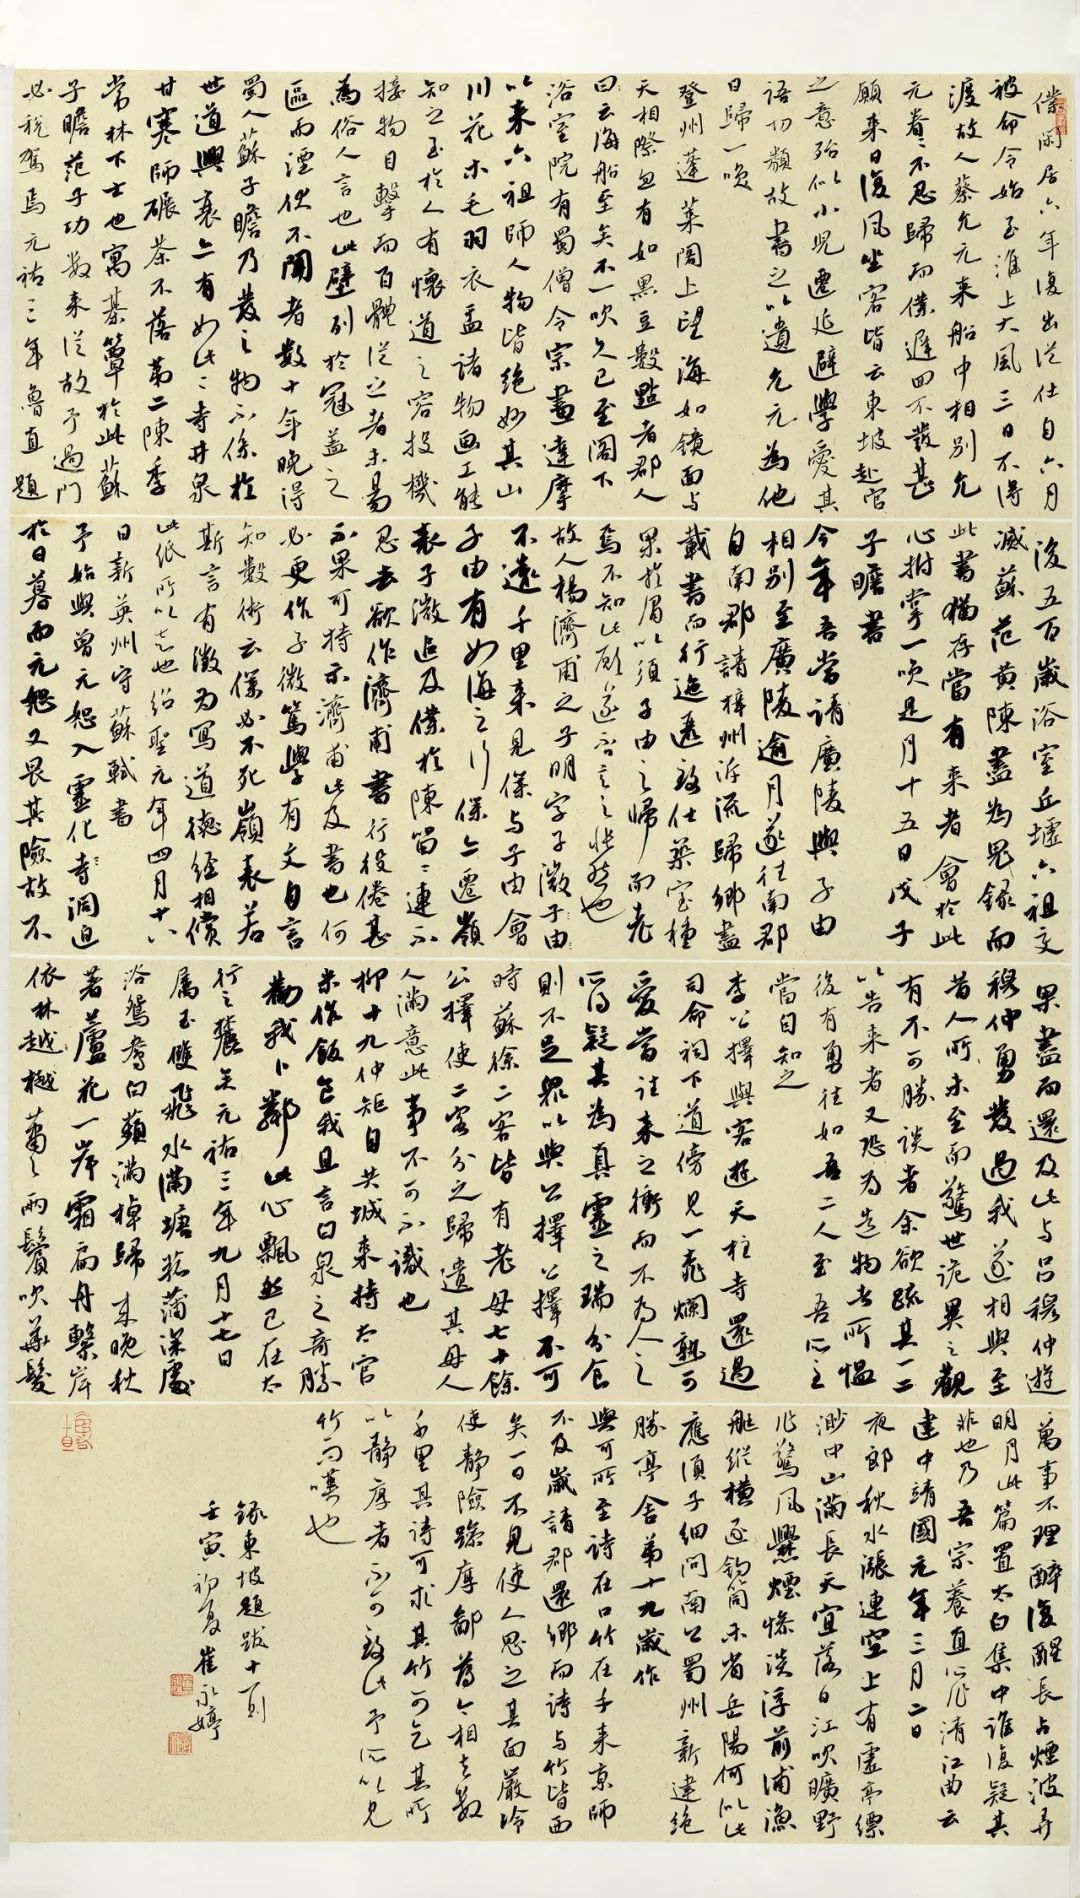 僕閑居六年復出從仕自六月
被命今始至淮上大風三日不得
渡故人蔡允元來船中相別允
元眷眷不忍歸而僕遲回不發甚
願來日復風坐客皆云東坡赴官
之意殆似小兒遷延避學愛其
語切類故書之以遺允元為他
日歸一噱
登州蓬萊閣上望海如鏡面與
天相際忽有如黑豆數點者郡人
曰云海船至矣不一吹久已至閣下
浴室院有蜀僧令宗畫達摩
以來六祖師人物皆絕妙其山
川花木毛羽衣盂諸物画工能
知之至於人有懷道之容投機
接物目擊而百體從之者未易
為俗人言也此壁列於冠蓋之
區而湮伏不聞者數十年晚得
蜀人蘇子瞻乃發之物不係於
世道興衰亦有如此此寺井泉
甘寒師碾茶不落第二陳季
常林下士也寓棊簟於此蘇
子瞻范子功數來從故予過門
必稅駕焉元祐三年魯直題
後五百歲浴室丘墟六祖變
滅蘇范黃陳盡為鬼錄而
此書猶存當有來者會於此
心拊掌一吹是月十五日戊子
子瞻書
今年吾當請廣陵與子由
相別至廣陵逾月遂往南郡
自南郡請梓州泝流歸鄉盡
載書而行迤邐致仕築室種
果於眉以須子由之歸而老
焉不知此願遂否言之悵然也
故人楊濟甫之子明字子微子由
不遠千里來見僕與子由會
子由有如海之行僕亦遷嶺
表子微追及僕於陳留留連不
忍去欲作濟甫書行役倦甚
不果可持示濟甫此及書也何
必更作子微篤學有文自言
知數術云僕必不死嶺表若
斯言有徵為寫道德經相償
此紙所以志也紹聖元年四月十六
日新英州守蘇軾書
予始與曾元恕入靈化寺洞迫
於日暮而元恕又畏其險故不
果盡而還及此与呂穆仲遊
穆仲勇發過我遂相與至
昔人所未至而驚世詭異之觀
有不可勝談者余欲疏其一二
以告來者又恐為造物者所慍
後有勇往如吾二人至吾所至
當自知之
李公擇與客遊天柱寺還過
司命祠下道傍見一桃爛熟可
愛當往來之衝而不為人之
所得疑其為真靈之瑞分食
則不足眾以與公擇公擇不可
時蘇徐二客皆有老母七十餘
公擇使二客分之歸遺其母人
人滿意此事不可不識也
柳十九仲矩自共城來持太官
米作飯食我且言百泉之奇勝
勸我卜鄰此心飄然已在太
行之麓矣元祐三年九月十七日
属玉雙飛水滿塘菰蒲深處
浴鴛鴦白蘋滿棹歸來晚秋
著蘆花一岸霜扁舟繫岸
依林越樾蕭蕭兩鬢吹華髮
萬事不理醉復醒長占煙波弄
明月此篇置太白集中誰復疑其
非也乃吾宗養直所作清江曲云
建中靖國元年三月二日
夜郎秋水漲連空上有虛亭縹
渺中山滿長天宜落日江吹曠野
作驚風爨煙慘淡浮前浦漁
艇縱橫逐釣筒未省岳陽何似此
應須子細問南公蜀州新建絕
勝亭舍弟十九歲作
與可所至詩在口竹在手來京師
不及歲請郡還鄉而詩与竹皆西
矣一日不見使人思之其面嚴冷
使靜險躁厚鄙薄今相去數
千里其詩可求其竹可乞其所
以靜厚者不可致此予所以見
竹而嘆也
錄東坡題跋十一則
壬寅初夏崔永婷